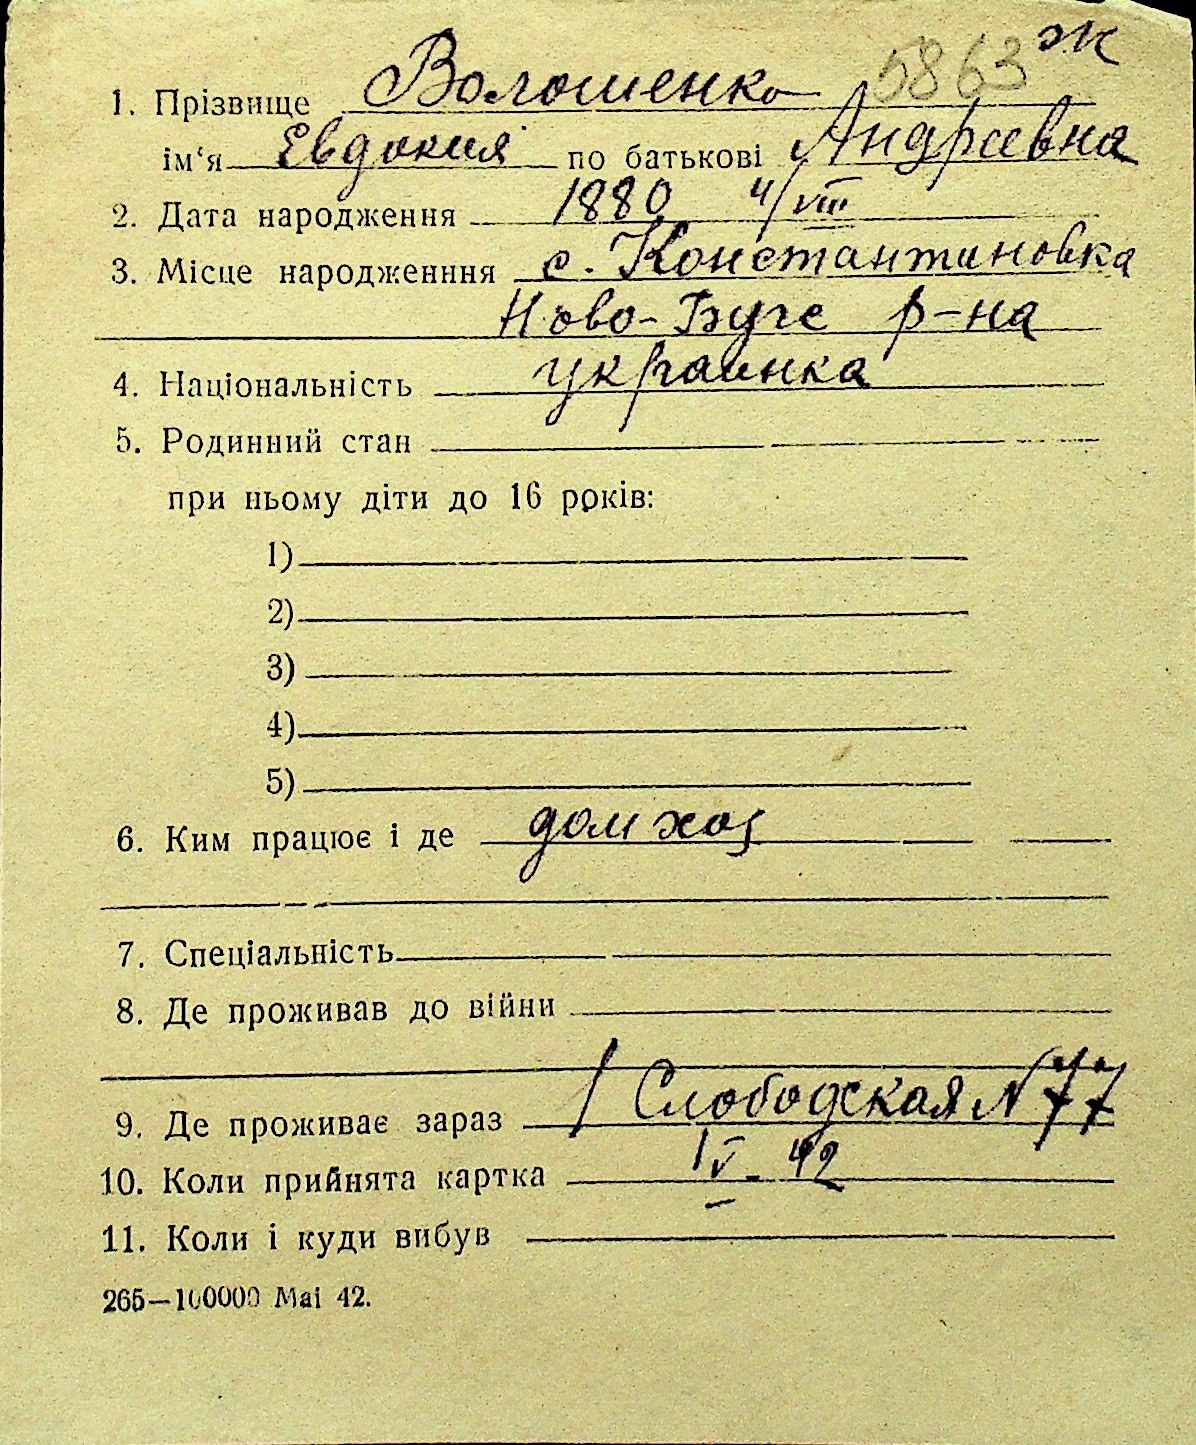 5863 ж
1. Прізвище Волошенко
ім‘я Евдокия по батькові Андреевна
2. Дата народження 1880 4/VIII
3. Місце народженння с. Константиновка
Ново-Буге р-на
4. Національність украинка
5. Родинний стан
при ньому діти до 16 років:
1)
2)
3)
4)
5)
6. Ким працює і де дом хоз
7. Спеціальність
8. Де проживав до війни
9. Де проживає зараз / Слободская N 77
10. Коли прийнята картка IV - 42
11. Коли і куди вибув
265—100000 Mai 42.